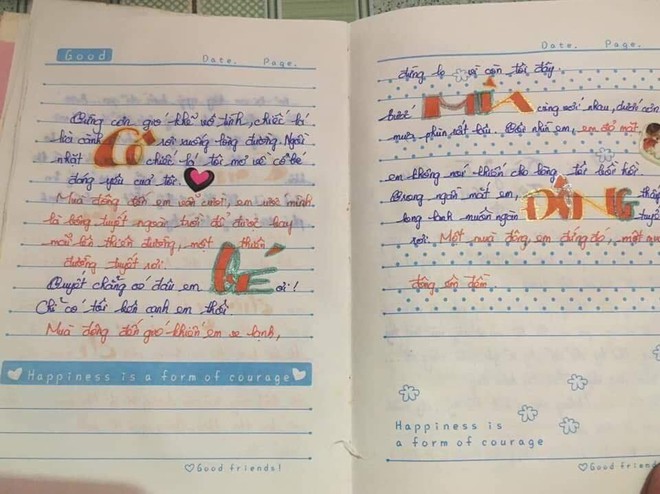 Good
Date. Page.
Từng cơn gió khẽ vô tình, chiếc lá
lìa cành rơi xuống lòng đường. Ngồi
nhặt chiếc lá tôi mơ về cô bé
đáng yêu của tôi.
Mùa đông đến em vẫn cười, em ước mình
là bông tuyết ngoài trời để được bay
mãi lên thiên đường, một thiên
đường tuyết rơi.
Tuyết chẳng có đâu em BÉ ơi!
Chỉ có tôi bên cạnh em thôi
Mùa đông đến gió khiến em se lạnh,
Happiness is a form of courage
Good friends!
Date. Page.
đừng lo vì còn tôi đây.
bước MÌA cùng với nhau, dưới cơn
mưa phùn rất lâu. Tôi nhìn em, em đỏ mặt,
em không nói khiến cho lòng tôi bồi hồi
Trong ngần mắt em, ĐÔNG
long lanh muôn ngàn
rơi. Một mùa đông em đứng đó, một
đông êm đềm
Happiness is
a form of courage
Good friends